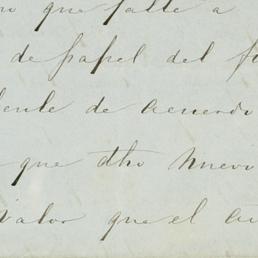 que falte a
de papel del
de acuerdo
que dho nuevo
valor que el